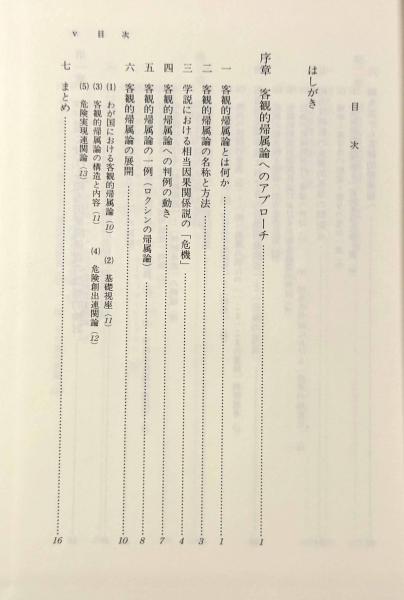 v　目　次
目　次
はしがき
序章　客観的帰属論へのアプローチ……1
一　客観的帰属論とは何か……1
二　客観的帰属論の名称と方法……3
三　学説における相当因果関係説の「危機」……4
四　客観的帰属論への判例の動き……7
五　客観的帰属論の一例（ロクシンの帰属論）……8
六　客観的帰属論の展開……10
(1)　わが国における客観的帰属論（10）　(2)　基礎視座（11）
(3)　客観的帰属論の構造と内容（11）　(4)　危険創出連関論（12）
(5)　危険実現連関論（13）
七　まとめ……16